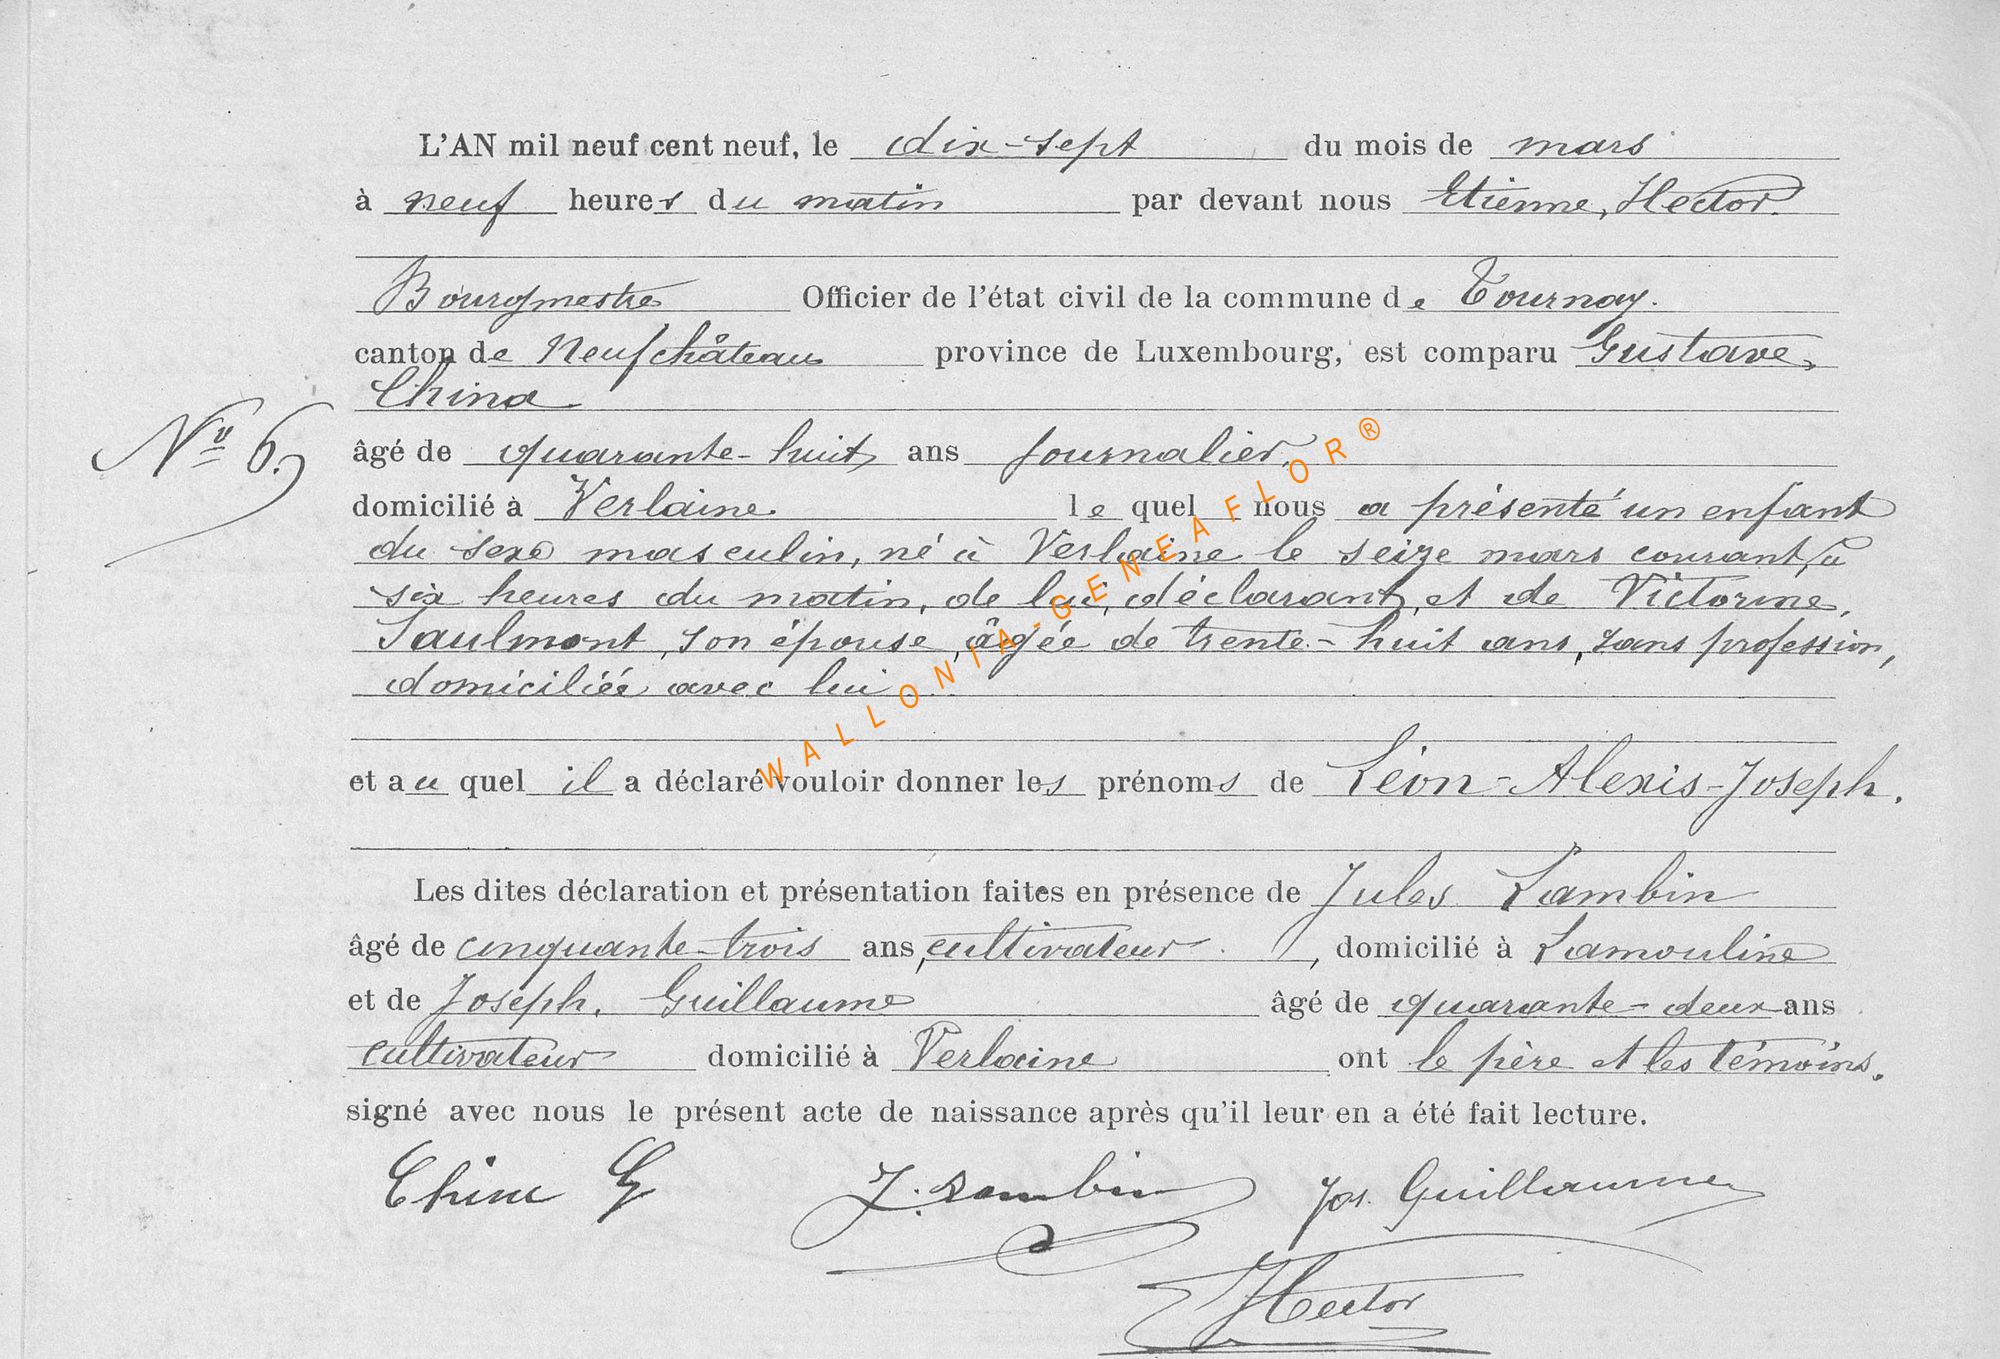 L'AN mil neuf cent neuf, le dix-sept du mois de mars
à neuf heures du matin par devant nous Etienne, Hector.
Bourgmestre Officier de l'état civil de la commune de Tournay.
canton de Neufchâteau province de Luxembourg, est comparu Gustave,
China
No 6.
âgé de quarante-huit ans journalier.
domicilié à Verlaine le quel nous a présenté un enfant
du sexe masculin, né à Verlaine le seize mars courant, à
six heures du matin, de lui, déclarant, et de Victorine,
Saulmont, son épouse, âgée de trente-huit ans, sans profession,
domiciliée avec lui
et au quel il a déclaré vouloir donner les prénoms de Léon-Alexis-Joseph.
Les dites déclaration et présentation faites en présence de Jules Lambin
âgé de cinquante-trois ans, cultivateur, domicilié à Lamouline
et de Joseph, Guillaume âgé de quarante-deux ans
cultivateur domicilié à Verlaine ont le père et les témoins.
signé avec nous le présent acte de naissance après qu'il leur en a été fait lecture.
China G J. Lambin Jos. Guillaume
Hector
WALLONIA-GENEAFLOR®